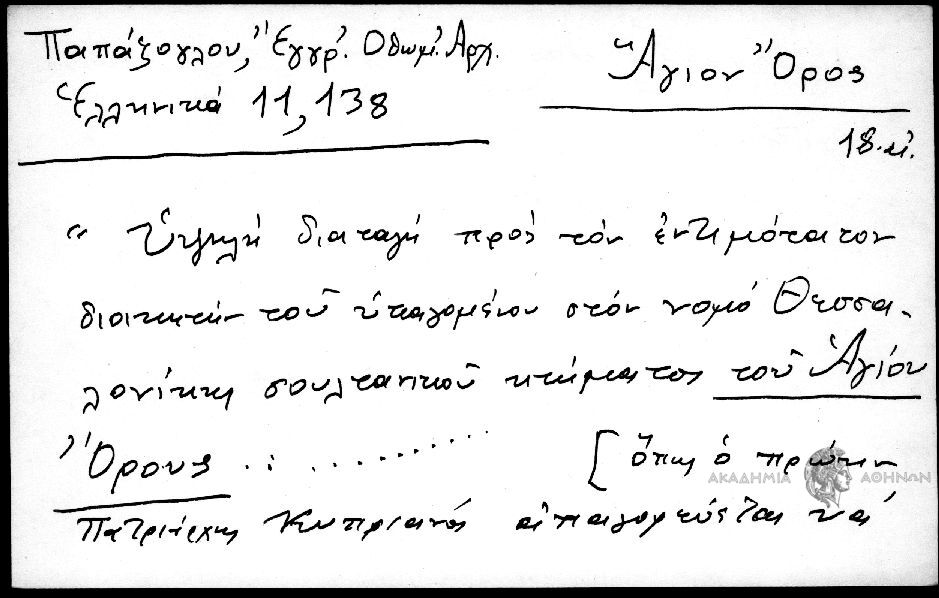 Παπάζογλου, Ἔγγρ. Ὀθωμ. Ἀρχ.
Ἑλληνικά 11, 138
Ἅγιον Ὄρος
18. αἰ.
" Ὑψηλή διαταγή πρός τόν ἐντιμότατον
διοικητήν τοῦ ὑπαγομένου στόν νομό Θεσσα-
λονίκης σουλτανικοῦ κτήματος τοῦ Ἁγίου
Ὄρους ............ [ὅπως ὁ πρώην
ΑΚΑΔΗΜΙΑ ΑΘΗΝΩΝ
Πατριάρχης Κυπριανός ἀπαγορεύεται νά